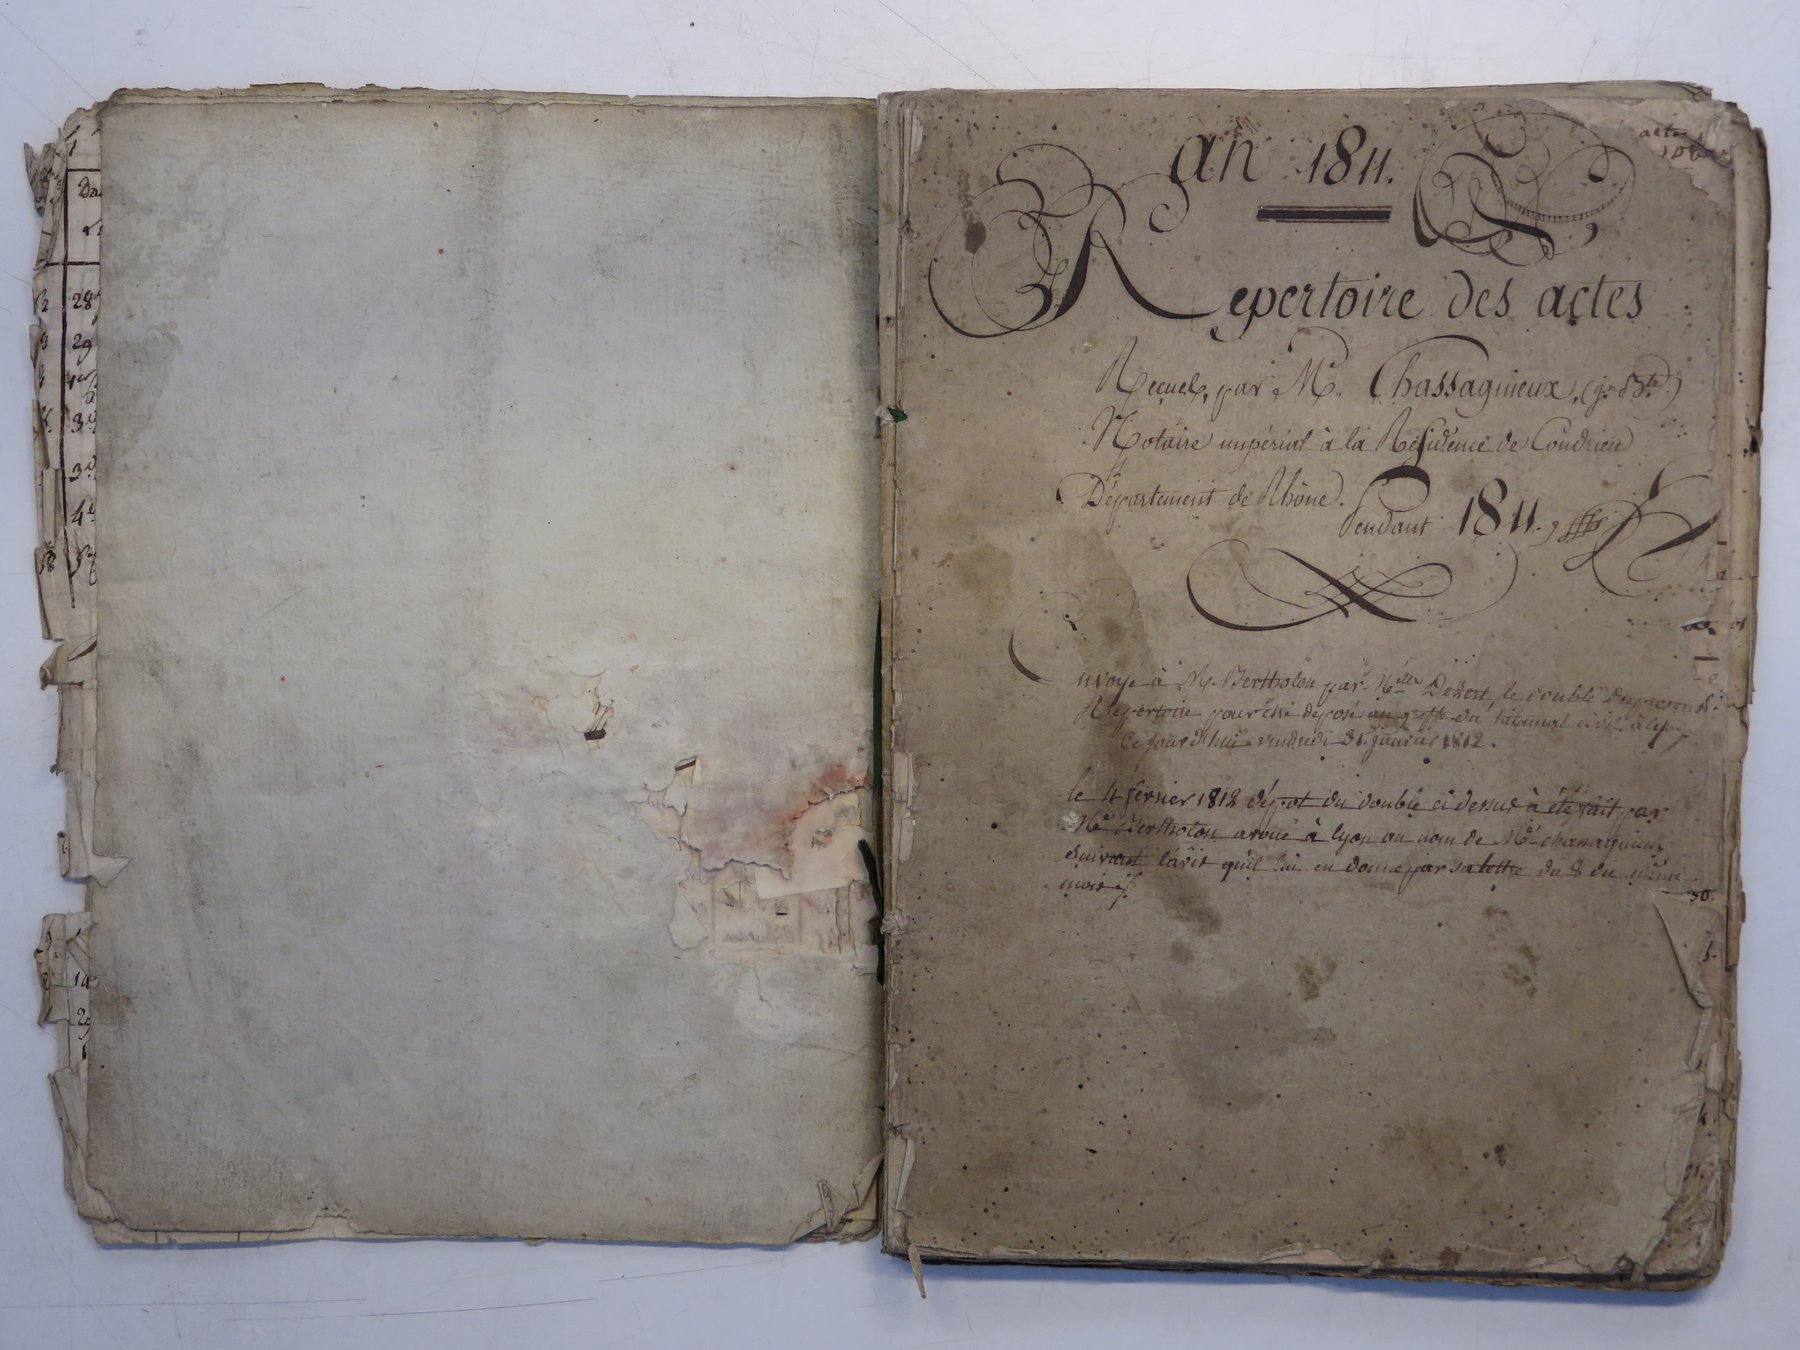 Da
28
29
3
3
4
5
10
29
actes
108
an 1811.
Repertoire des actes
Reçuës, par Me. Chassagnieux, (jn. Bte.)
Notaire impérial à la Résidence de Condrieu
Département de Rhône.
Pendant 1811.,
Envoyé à Me. Bertholon par Melle Dezest, le double du présent
Repertoire pour être déposé au greffe du tribunal civil à Lyon
Ce jourd'hui vendredi 31. janvier 1812.
le 4 fevrier 1812 dépot du double ci dessus à été fait par
Me Bertholon avoué à lyon au nom de Me chassagnieux
suivant l'avis qu'il lui en donne par sa lettre du 8 du même
mois
30.